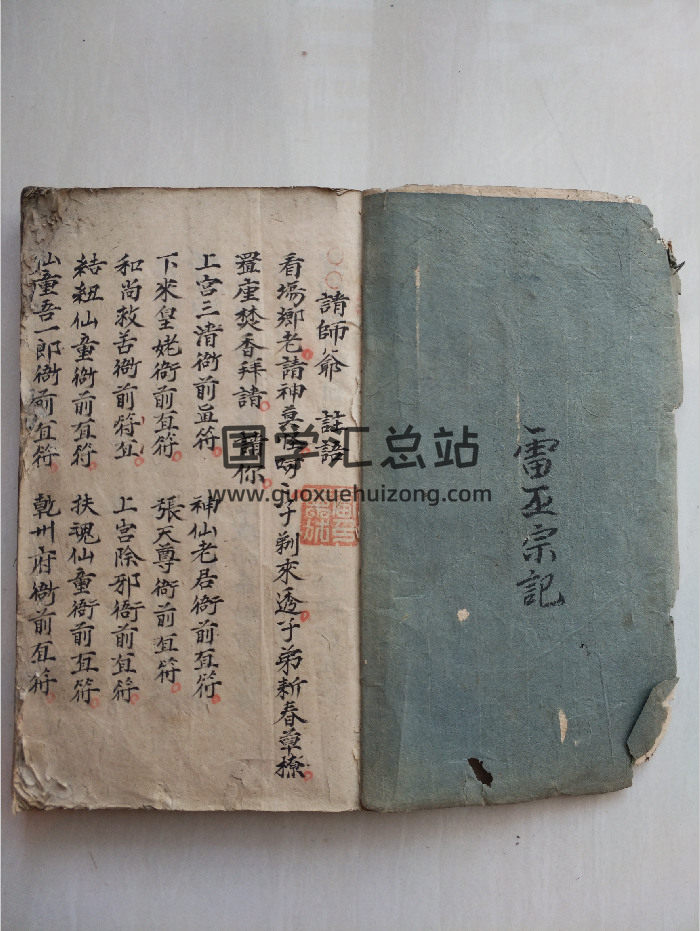 雷丕宗記
請師爺 註語
看塲鄉老請神真 子剃來透子弟新春草橑
置座焚香拜請 請你
上宮三清衙前直符 神仙老君衙前直符
下來皇姥衙前直符 張天尊衙前直符
和尚救苦衙前符直 上宮除邪衙前直符
結紐仙童衙前直符 扶魂仙童衙前直符
仙童吾一郎衙前直符 乾州府衙前直符
国学汇总站
www.guoxuehuizong.com